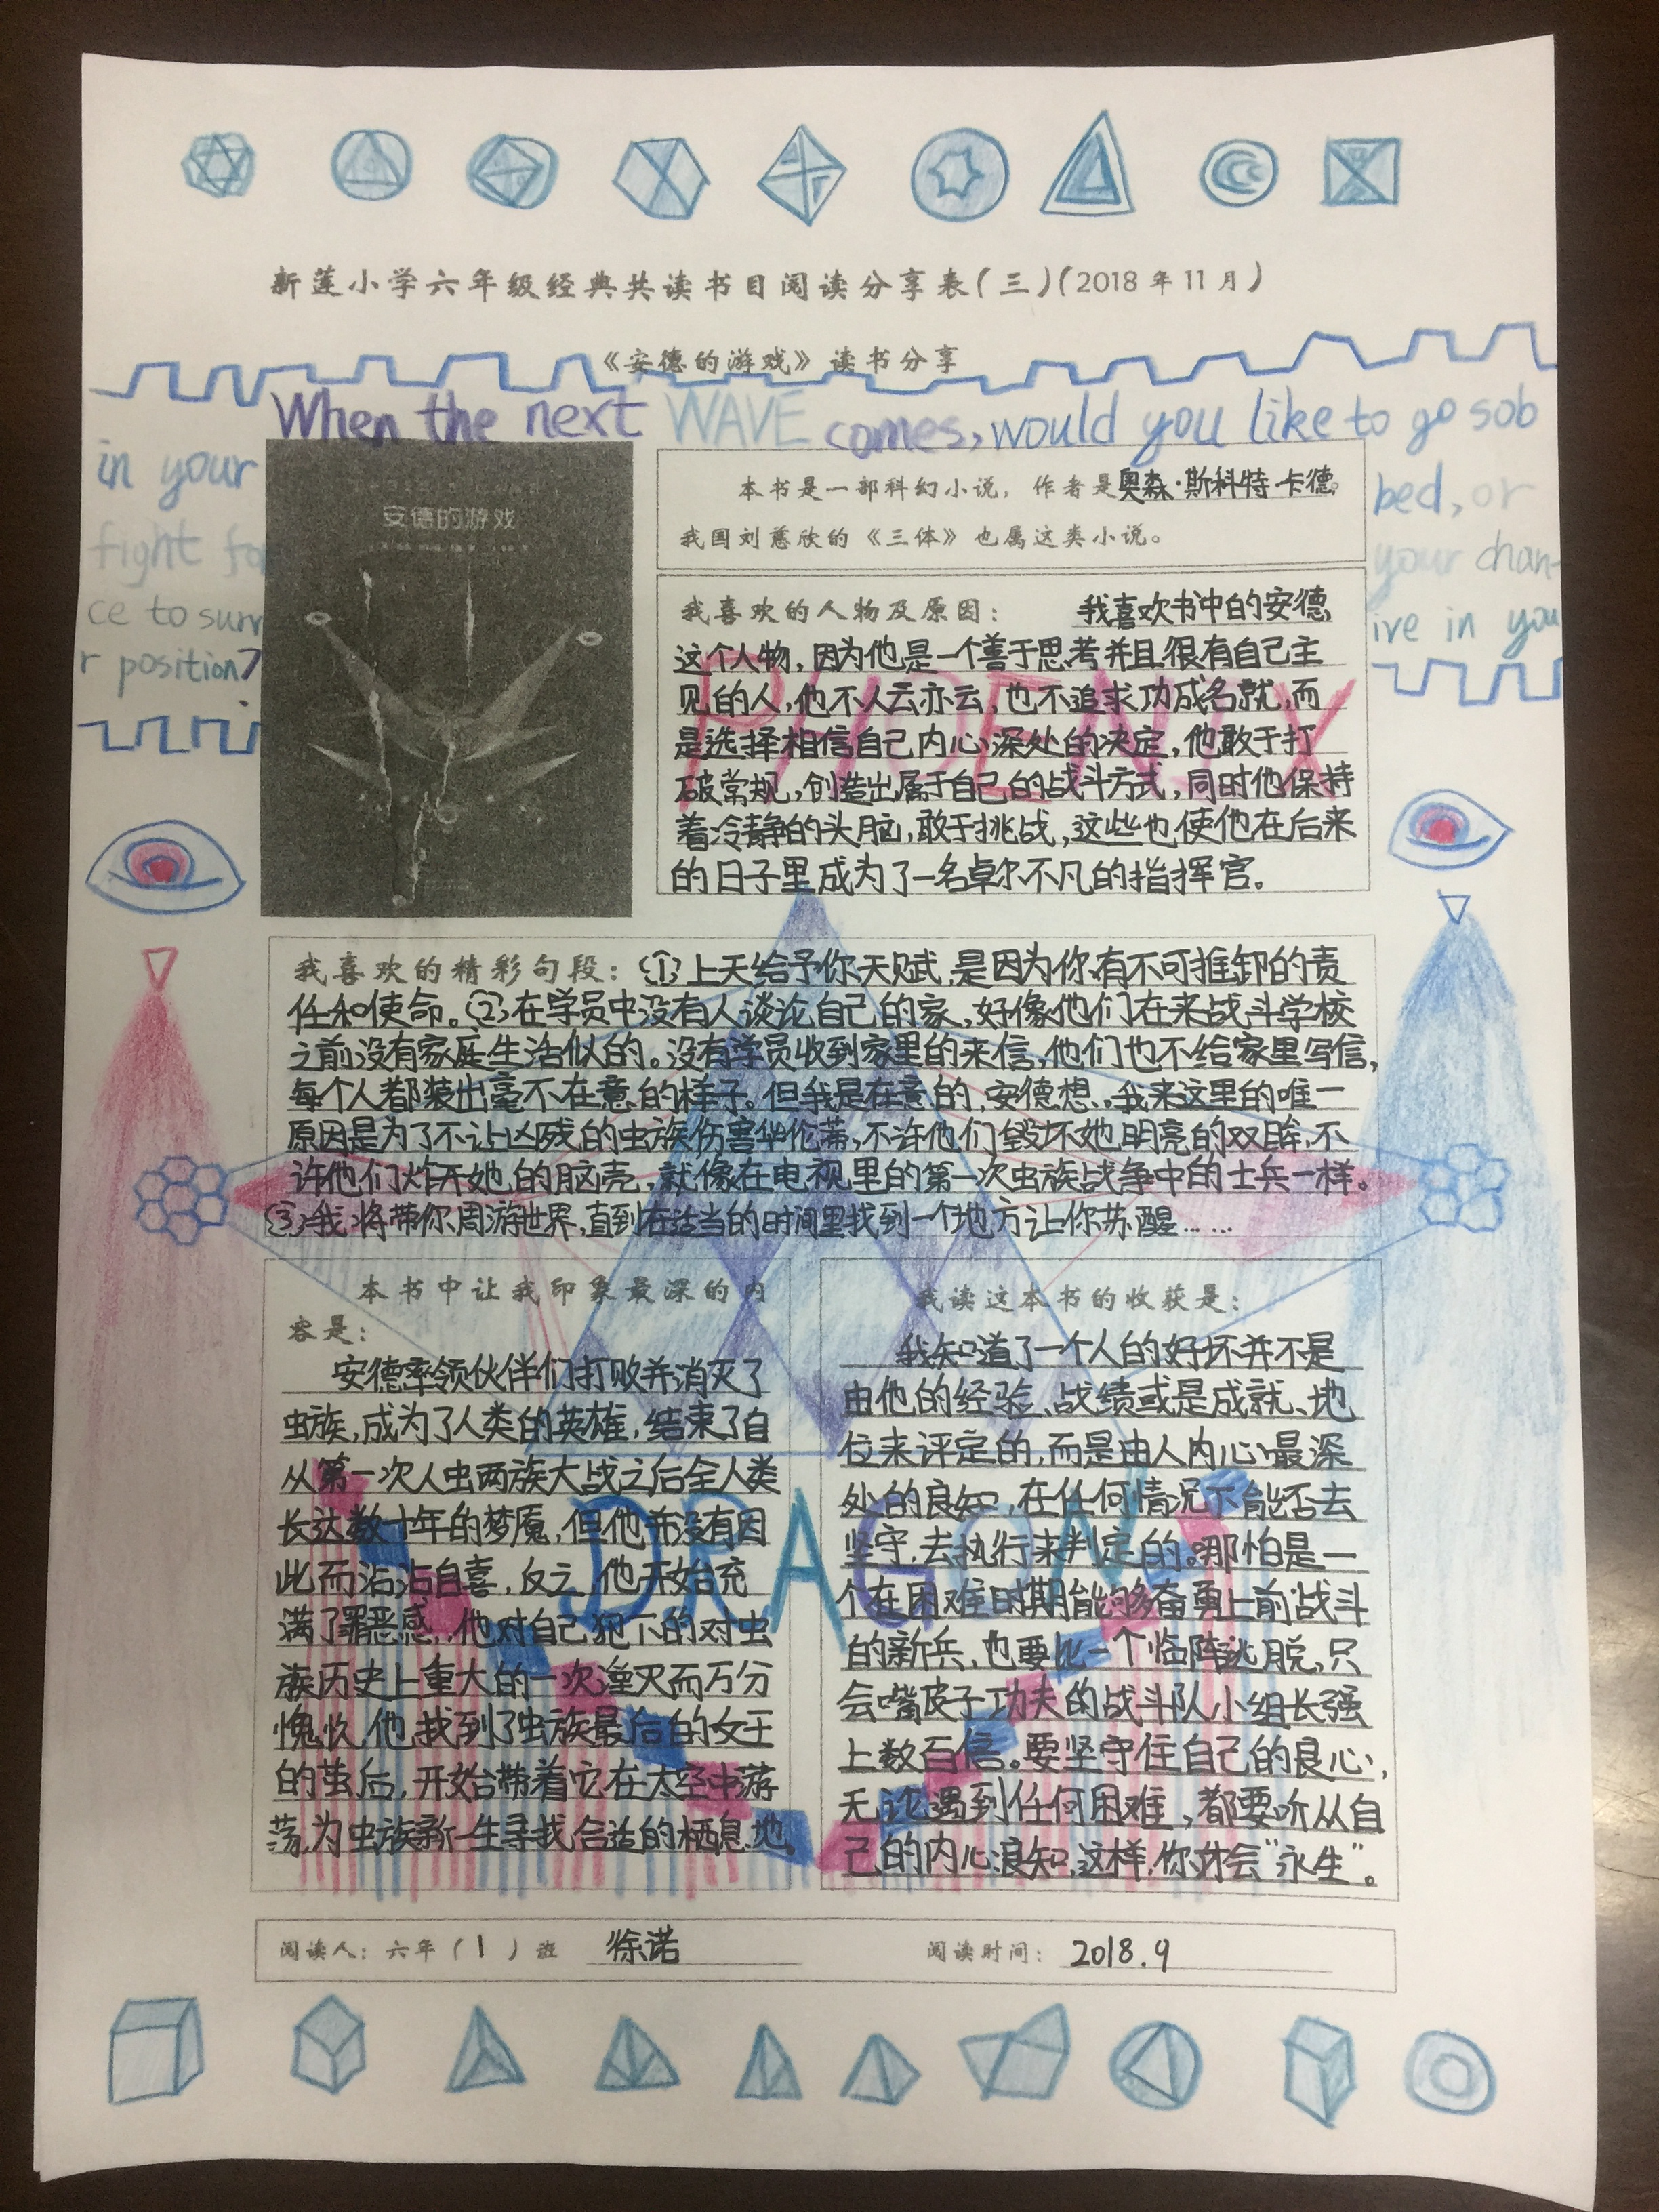 新莲小学六年级经典共读书目阅读分享表(三)(2018年11月)
《安德的游戏》读书分享
When the next WAVE comes, would you like to go sob
in your bed, or
fight for your chan-
ce to surv ive in you
r position?
安德的游戏
本书是一部科幻小说，作者是奥森·斯科特·卡德。
我国刘慈欣的《三体》也属这类小说。
我喜欢的人物及原因： 我喜欢书中的安德
这个人物，因为他是一个善于思考并且很有自己主
见的人，他不人云亦云，也不追求功成名就，而
是选择相信自己内心深处的决定，他敢于打
破常规，创造出属于自己的战斗方式，同时他保持
着冷静的头脑，敢于挑战，这些也使他在后来
的日子里成为了一名卓尔不凡的指挥官。
PHOENIX
我喜欢的精彩句段：①上天给予你天赋，是因为你有不可推卸的责
任和使命。②在学员中没有人谈论自己的家，好像他们在来战斗学校
之前没有家庭生活似的。没有学员收到家里的来信，他们也不给家里写信，
每个人都装出毫不在意的样子。但我是在意的，安德想，我来这里的唯一
原因是为了不让凶残的虫族伤害华伦蒂，不许他们毁坏她明亮的双眸，不
许他们炸开她的脑壳，就像在电视里的第一次虫族战争中的士兵一样。
③我将带你周游世界，直到在适当的时间里找到一个地方让你苏醒……
本书中让我印象最深的内
容是：
安德率领伙伴们打败并消灭了
虫族，成为了人类的英雄，结束了自
从第一次人虫两族大战之后全人类
长达数十年的梦魇，但他并没有因
此而沾沾自喜，反之，他开始充
满了罪恶感，他对自己犯下的对虫
族历史上重大的一次湮灭而万分
愧疚，他找到了虫族最后的女王
的茧后，开始带着它在太空中游
荡，为虫族新一生寻找合适的栖息地。
DRAGON
我读这本书的收获是：
我知道了一个人的好坏并不是
由他的经验、战绩或是成就、地
位来评定的，而是由人内心最深
处的良知，在任何情况下能否去
坚守，去执行来判定的。哪怕是一
个在困难时期能够奋勇上前战斗
的新兵，也要比一个临阵逃脱，只
会嘴皮子功夫的战斗队小组长强
上数百倍。要坚守住自己的良心，
无论遇到任何困难，都要听从自
己的内心良知，这样，你才会“永生”。
阅读人：六年（1）班 徐诺 阅读时间：2018.9